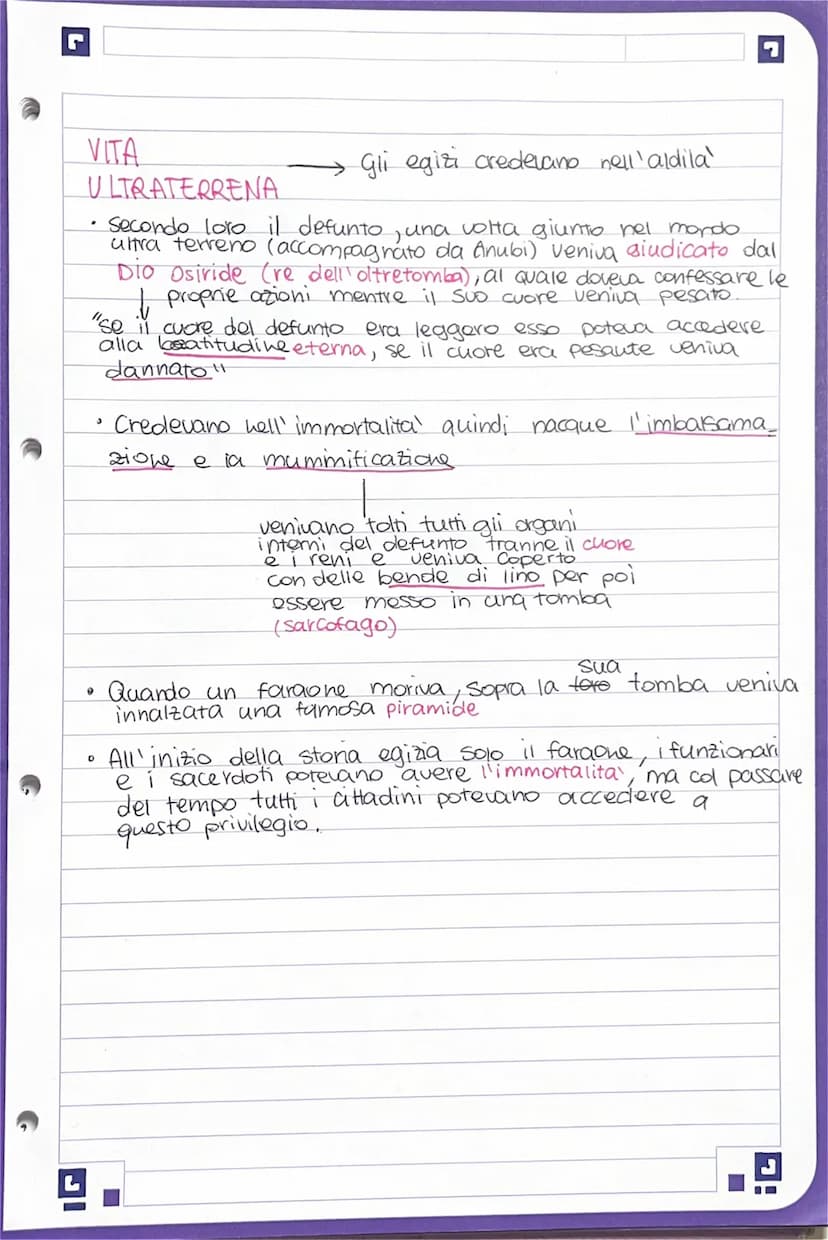 VITA
ULTRATERRENA
→ Gli egizi credevano nell'aldilà
• Secondo loro il defunto, una volta giunto nel mondo
ultra terreno (accompagnato da Anubi) veniva giudicato dal
Dio Osiride (re dell'oltretomba), al quale doveva confessare le
proprie azioni mentre il suo cuore veniva pesato.
"se il cuore del defunto era leggero esso poteva accedere
alla beatitudine eterna, se il cuore era pesante veniva
dannato"
• Credevano nell'immortalità quindi nacque l'imbalsama_
zione e la mummificazione
venivano tolti tutti gli organi
interni del defunto tranne il cuore
e i reni e veniva coperto
con delle bende di lino per poi
essere messo in una tomba
(sarcofago)
sua
• Quando un faraone moriva, sopra la loro tomba veniva
innalzata una famosa piramide
• All'inizio della storia egizia solo il faraone, i funzionari
e i sacerdoti potevano avere l'immortalità, ma col passare
del tempo tutti i cittadini potevano accedere a
questo privilegio.